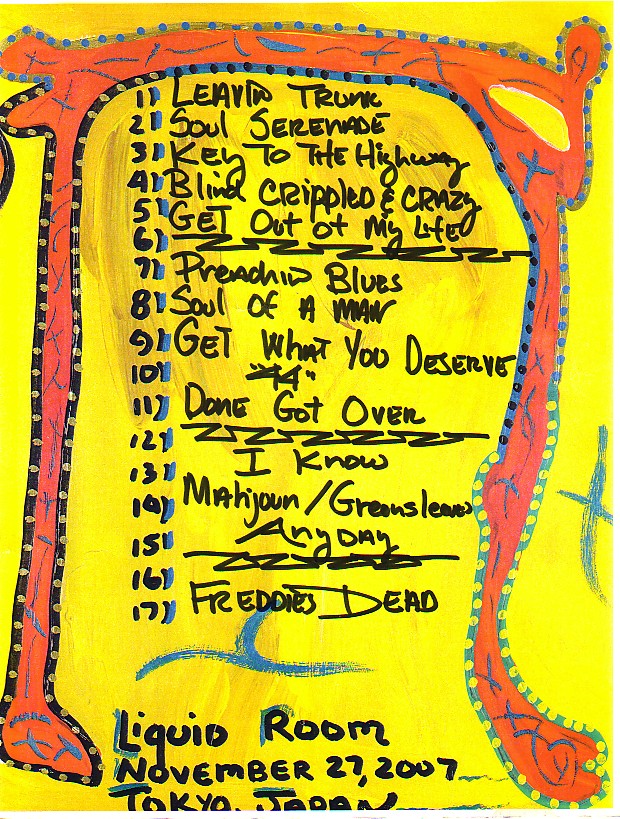 1) LEAVIN TRUNK
2) SOUL SERENADE
3) KEY TO THE HIGHWAY
4) Blind CRIPPLED & CRAZY
5) GET OUT OF MY LIFE
6)
7) PREACHIN BLUES
8) SOUL OF A MAN
9) GET WHAT YOU DESERVE
10) "44"
11) DONE GOT OVER
12)
13) I KNOW
14) MAHJOUN / GREENSLEEVES
15) ANYDAY
16)
17) FREDDIES DEAD
LIQUID ROOM
NOVEMBER 27, 2007
TOKYO, JAPAN